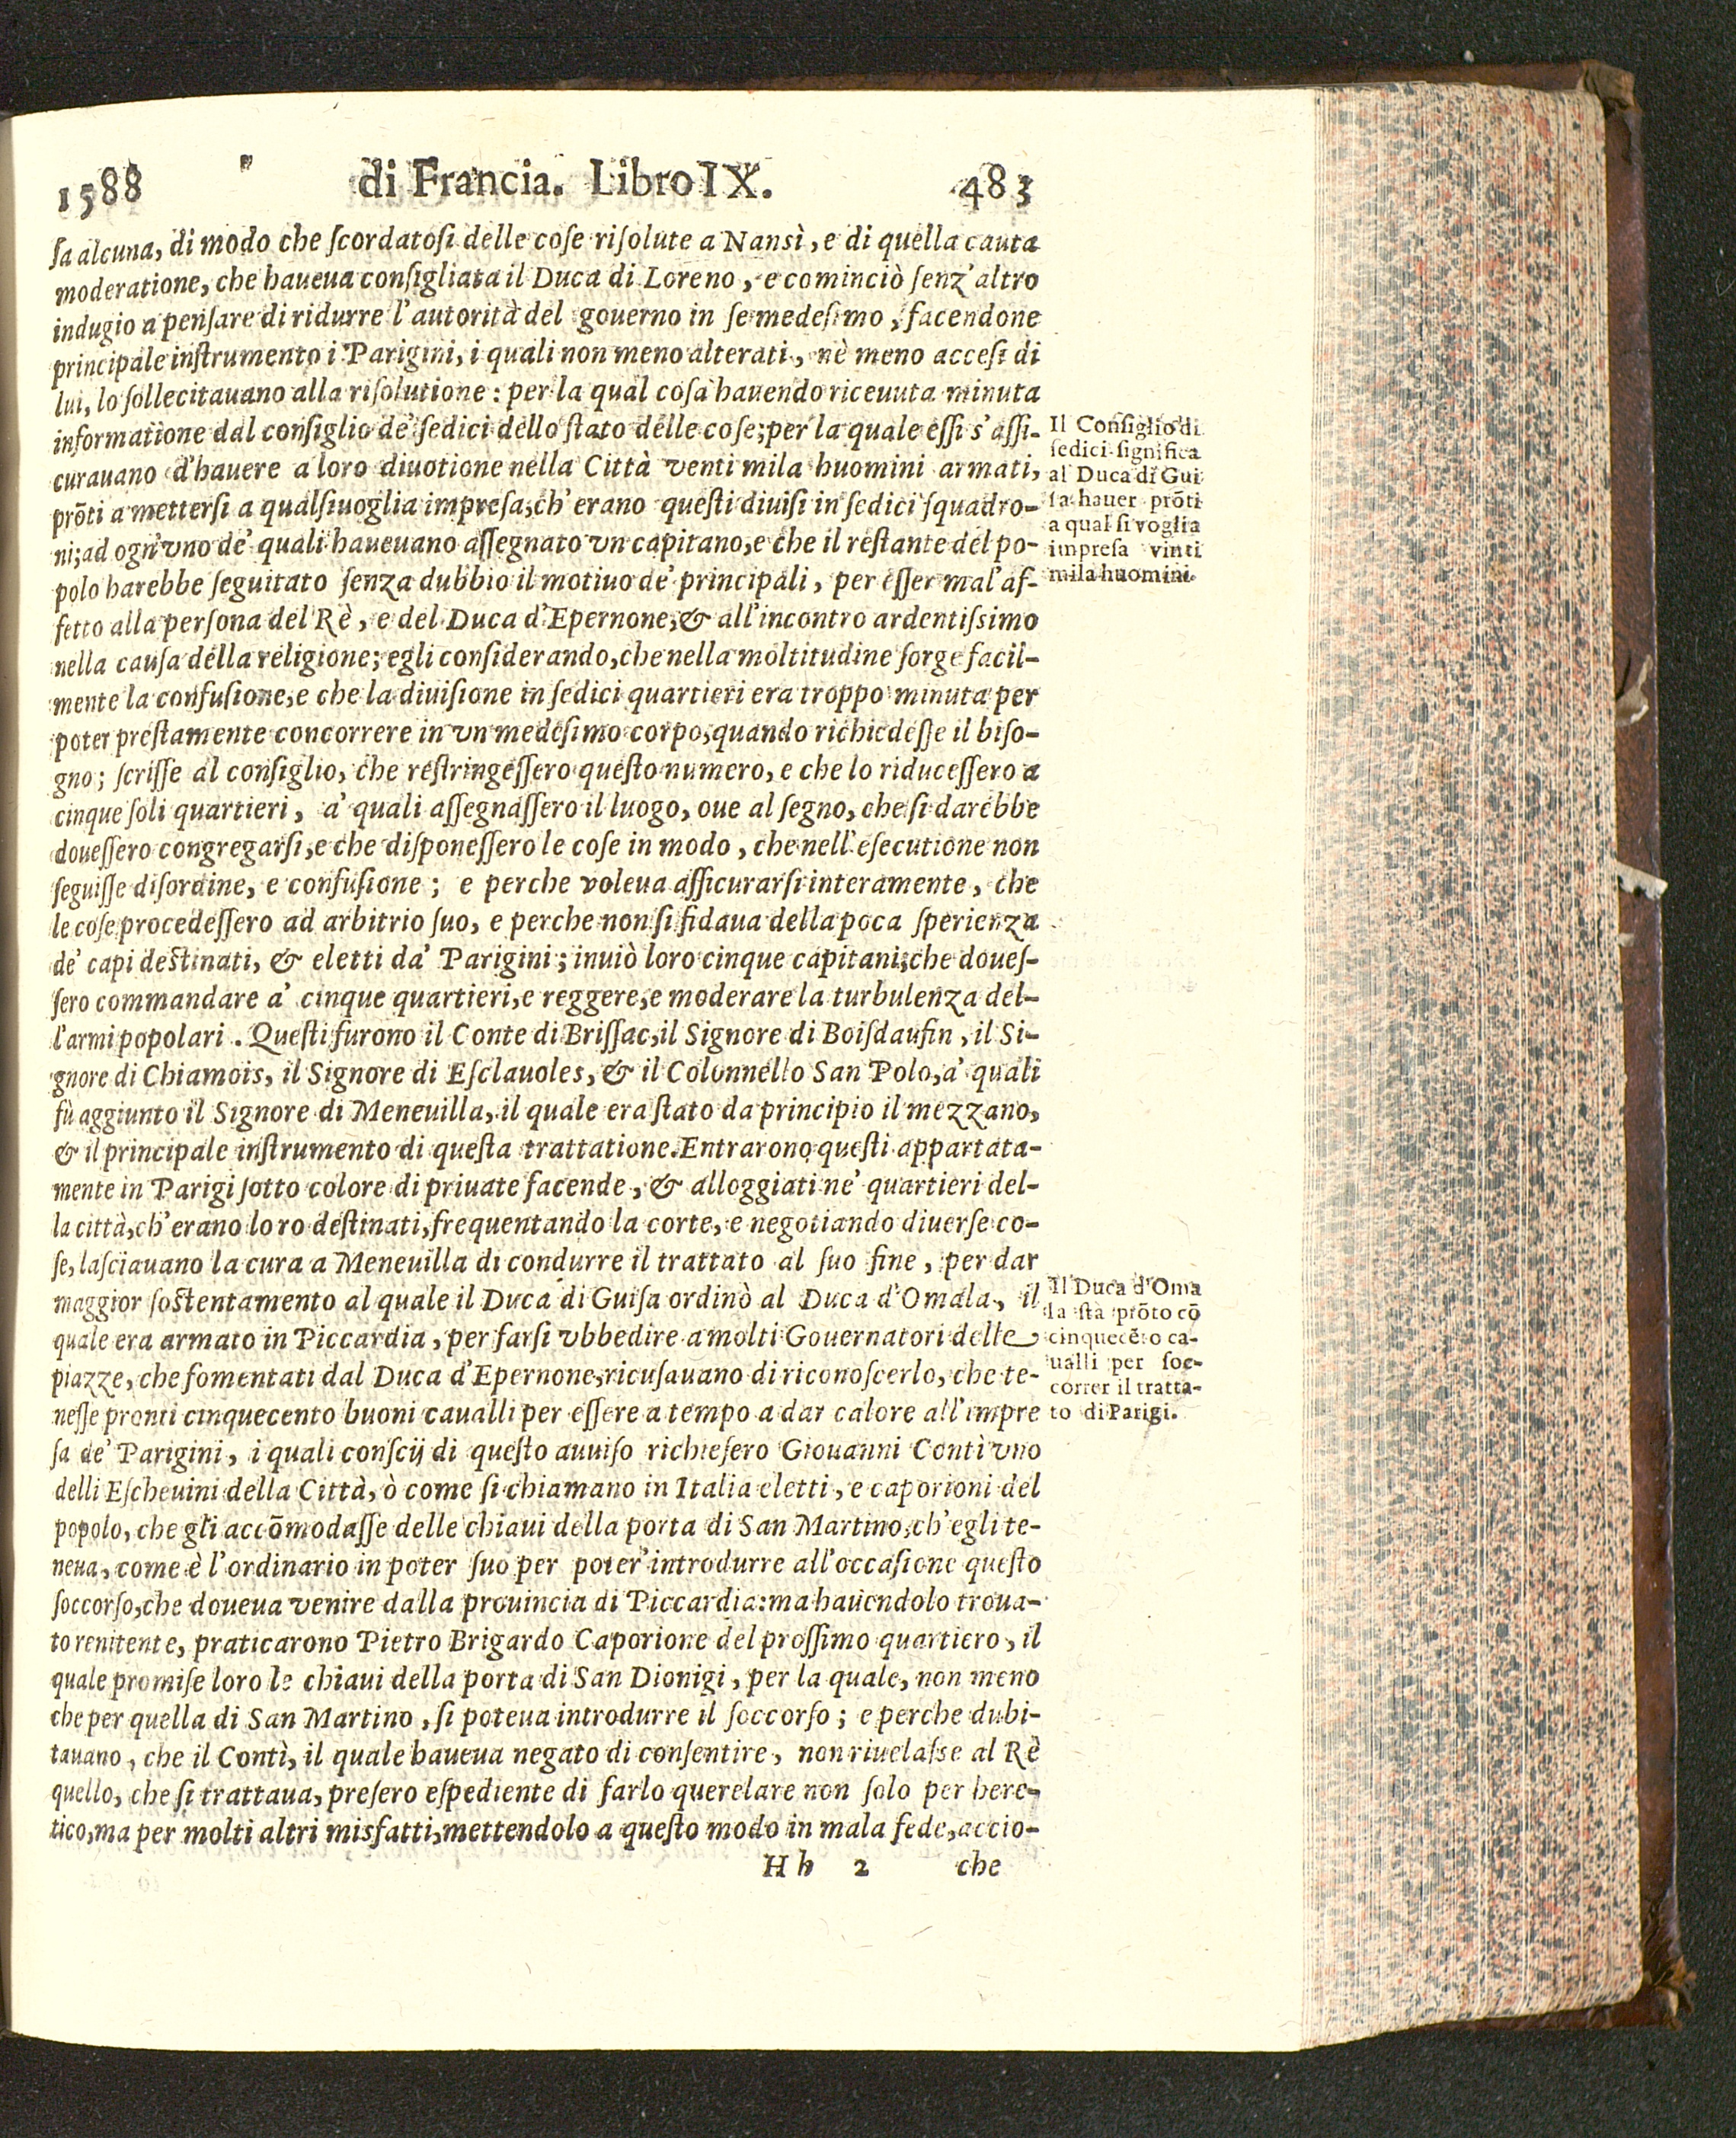 1588 di Francia. Libro IX. 483
ſa alcuna, di modo che ſcordatoſi delle coſe riſolute a Nansì, e di quella cauta
moderatione, che haueua conſigliata il Duca di Loreno, e cominciò ſenz'altro
indugio a penſare di ridurre l'autorità del gouerno in ſe medeſimo, facendone
principale inſtrumento i Parigini, i quali non meno alterati, nè meno acceſi di
lui, lo ſollecitauano alla riſolutione: per la qual coſa hauendo riceuuta minuta
informatione dal conſiglio de' ſedici dello ſtato delle coſe; per la quale eſſi s'aſſi-
curauano d'hauere a loro diuotione nella Città venti mila huomini armati,
prōti a metterſi a qualſiuoglia impreſa, ch'erano queſti diuiſi in ſedici ſquadro-
ni; ad ogn'vno de' quali haueuano aſſegnato vn capitano, e che il reſtante del po-
polo harebbe ſeguitato ſenza dubbio il motiuo de' principali, per eſſer mal'af-
fetto alla perſona del Rè, e del Duca d'Epernone, & all'incontro ardentiſsimo
nella cauſa della religione; egli conſiderando, che nella moltitudine ſorge facil-
mente la confuſione, e che la diuiſione in ſedici quartieri era troppo minuta per
poter preſtamente concorrere in vn medeſimo corpo, quando richiedeſſe il biſo-
gno; ſcriſſe al conſiglio, che reſtringeſſero queſto numero, e che lo riduceſſero a
cinque ſoli quartieri, a' quali aſſegnaſſero il luogo, oue al ſegno, che ſi darebbe
doueſſero congregarſi, e che diſponeſſero le coſe in modo, che nell'eſecutione non
ſeguiſſe diſordine, e confuſione; e perche voleua aſſicurarſi interamente, che
le coſe procedeſſero ad arbitrio ſuo, e perche non ſi fidaua della poca ſperienza
de' capi deſtinati, & eletti da' Parigini; inuiò loro cinque capitani, che doueſ-
ſero commandare a' cinque quartieri, e reggere, e moderare la turbulenza del-
l'armi popolari. Queſti furono il Conte di Briſſac, il Signore di Boiſdaufin, il Si-
gnore di Chiamois, il Signore di Eſclauoles, & il Colonnello San Polo, a' quali
fù aggiunto il Signore di Meneuilla, il quale era ſtato da principio il mezzano,
& il principale inſtrumento di queſta trattatione. Entrarono queſti appartata-
mente in Parigi ſotto colore di priuate facende, & alloggiati ne' quartieri del-
la città, ch'erano loro deſtinati, frequentando la corte, e negotiando diuerſe co-
ſe, laſciauano la cura a Meneuilla di condurre il trattato al ſuo fine, per dar
maggior ſoſtentamento al quale il Duca di Guiſa ordinò al Duca d'Omala, il
quale era armato in Piccardia, per farſi vbbedire a molti Gouernatori delle
piazze, che fomentati dal Duca d'Epernone, ricuſauano di riconoſcerlo, che te-
neſſe pronti cinquecento buoni caualli per eſſere a tempo a dar calore all'impre
ſa de' Parigini, i quali conſcij di queſto auuiſo richieſero Giouanni Contì vno
delli Eſcheuini della Città, ò come ſi chiamano in Italia eletti, e caporioni del
popolo, che gli accōmodaſſe delle chiaui della porta di San Martino, ch'egli te-
neua, come è l'ordinario in poter ſuo per poter' introdurre all'occaſione queſto
ſoccorſo, che doueua venire dalla prouincia di Piccardia: ma hauendolo troua-
to renitente, praticarono Pietro Brigardo Caporione del proſſimo quartiero, il
quale promiſe loro le chiaui della porta di San Dionigi, per la quale, non meno
che per quella di San Martino, ſi poteua introdurre il ſoccorſo; e perche dubi-
tauano, che il Contì, il quale haueua negato di conſentire, non riuelaſse al Rè
quello, che ſi trattaua, preſero eſpediente di farlo querelare non ſolo per here-
tico, ma per molti altri misfatti, mettendolo a queſto modo in mala fede, accio-
Hh 2 che
Il Conſiglio di
ſedici ſignifica
al Duca di Gui
ſa hauer prōti
a qual ſi voglia
impreſa vinti
mila huomini.
Il Duca d'Oma
la ſtà prōto cō
cinquecēto ca-
ualli per ſoc-
correr il tratta-
to di Parigi.